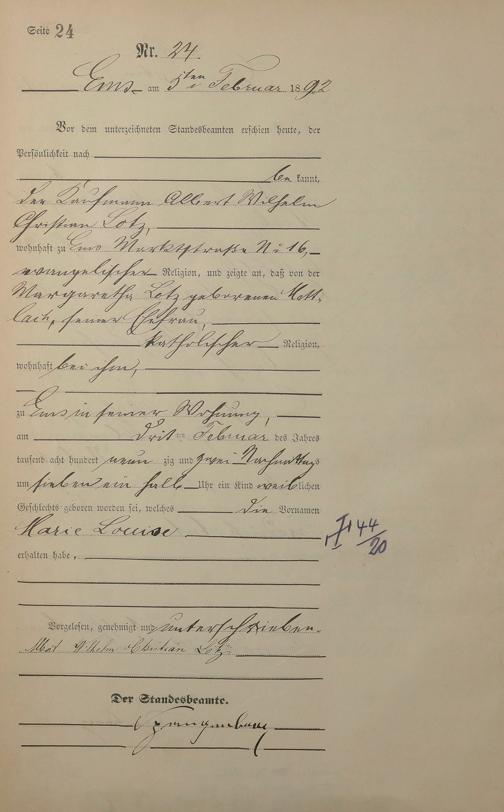 Seite 24
Nr. 24.
Ems am 5ten Februar 1892
Vor dem unterzeichneten Standesbeamten erschien heute, der
Persönlichkeit nach
be kannt,
der Kaufmann Albert Wilhelm
Christian Lotz,
wohnhaft zu Ems Marktstraße No 16,
evangelischer Religion, und zeigte an, daß von der
Margaretha Lotz geborenen Kott-
lack, seiner Ehefrau,
katholischer Religion,
wohnhaft bei ihm,
zu Ems in seiner Wohnung,
am Dritten Februar des Jahres
tausend acht hundert neun zig und zwei Nachmittags
um sieben ein halb Uhr ein Kind weib lichen
Geschlechts geboren worden sei, welches die Vornamen
Marie Louise
44/20
erhalten habe.
Vorgelesen, genehmigt und unterschrieben.
Wilhelm Christian Lotz
Der Standesbeamte.
Spangenberg